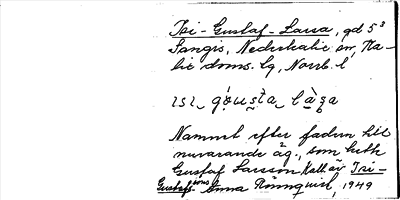 Isi-Gustaf-Lassa, gd 5³
Sangis, Nederkalix sn, Ka-
lix doms. lg, Norrb. l
ɪsɪ gøusta làsa
Namnet efter fadern till
nuvarande äg., som hette
Gustaf Larsson Kallas Isi-
Gustafs Anna Rönnquist, 1949